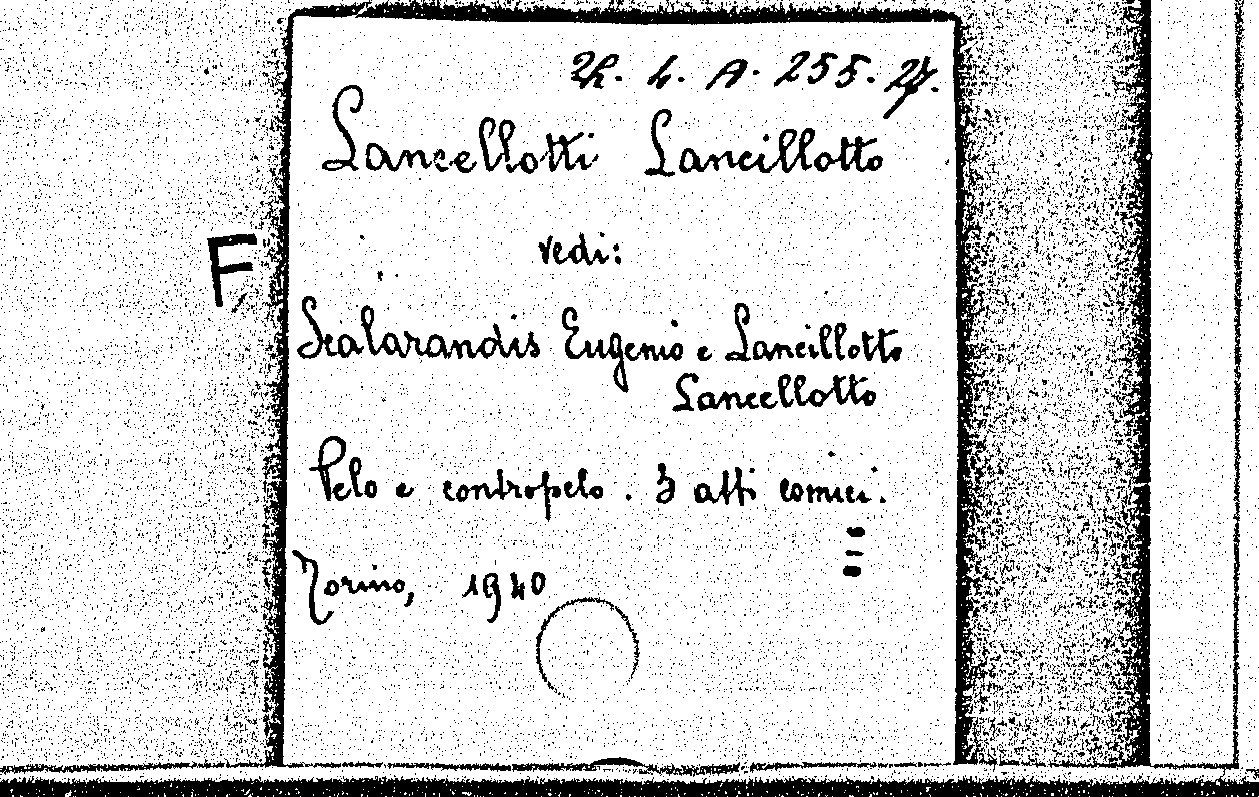 22. 4. A. 255. 27.
Lancellotti Lancillotto
vedi:
F
Scalarandis Eugenio e Lancillotto
Lancellotto
Pelo e contropelo. 3 atti comici.
Torino, 1940